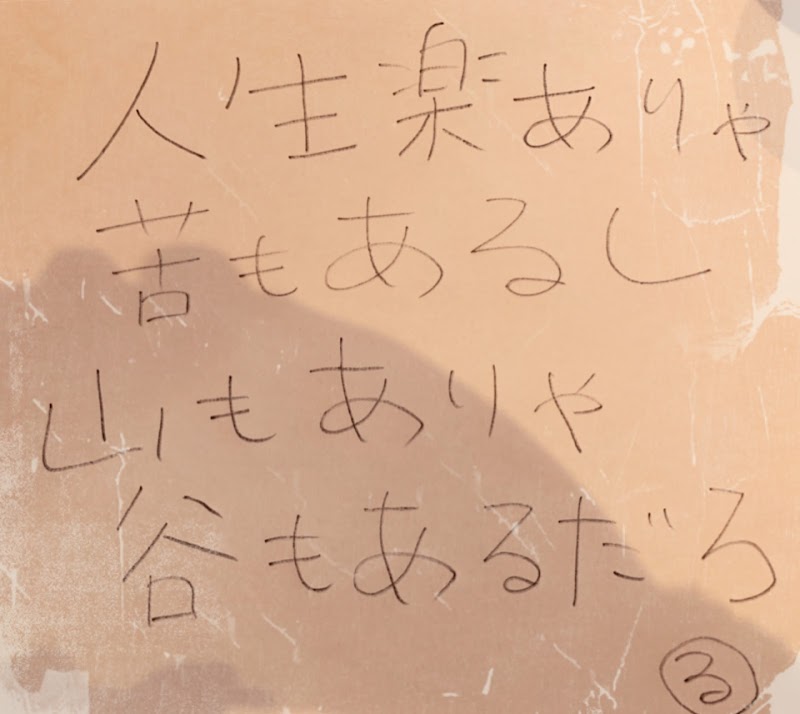 人生楽ありゃ
苦もあるし
山もありゃ
谷もあるだろ
る